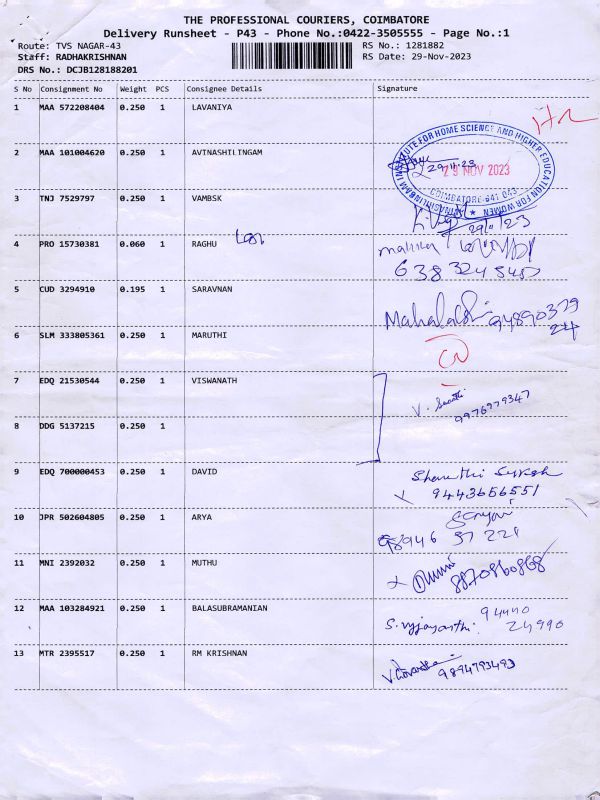 THE PROFESSIONAL COURIERS, COIMBATORE
Delivery Runsheet - P43 - Phone No.:0422-3505555 - Page No.:1
Route: TVS NAGAR-43 RS No.: 1281882
Staff: RADHAKRISHNAN RS Date: 29-Nov-2023
DRS No.: DCJB128188201
S No Consignment No Weight PCS Consignee Details Signature
1 MAA 572208404 0.250 1 LAVANIYA
2 MAA 101004620 0.250 1 AVINASHILINGAM
AVINASHILINGAM INSTITUTE FOR HOME SCIENCE AND HIGHER EDUCATION FOR WOMEN
29 NOV 2023
COIMBATORE-641 043
3 TNJ 7529797 0.250 1 VAMBSK
29/11/23
4 PRO 15730381 0.060 1 RAGHU
5 CUD 3294910 0.195 1 SARAVNAN
6 SLM 333805361 0.250 1 MARUTHI
7 EDQ 21530544 0.250 1 VISWANATH
9976979347
8 DDG 5137215 0.250 1
9 EDQ 700000453 0.250 1 DAVID
9443656551
10 JPR 502604805 0.250 1 ARYA
11 MNI 2392032 0.250 1 MUTHU
8870860868
12 MAA 103284921 0.250 1 BALASUBRAMANIAN
13 MTR 2395517 0.250 1 RM KRISHNAN
9894793493